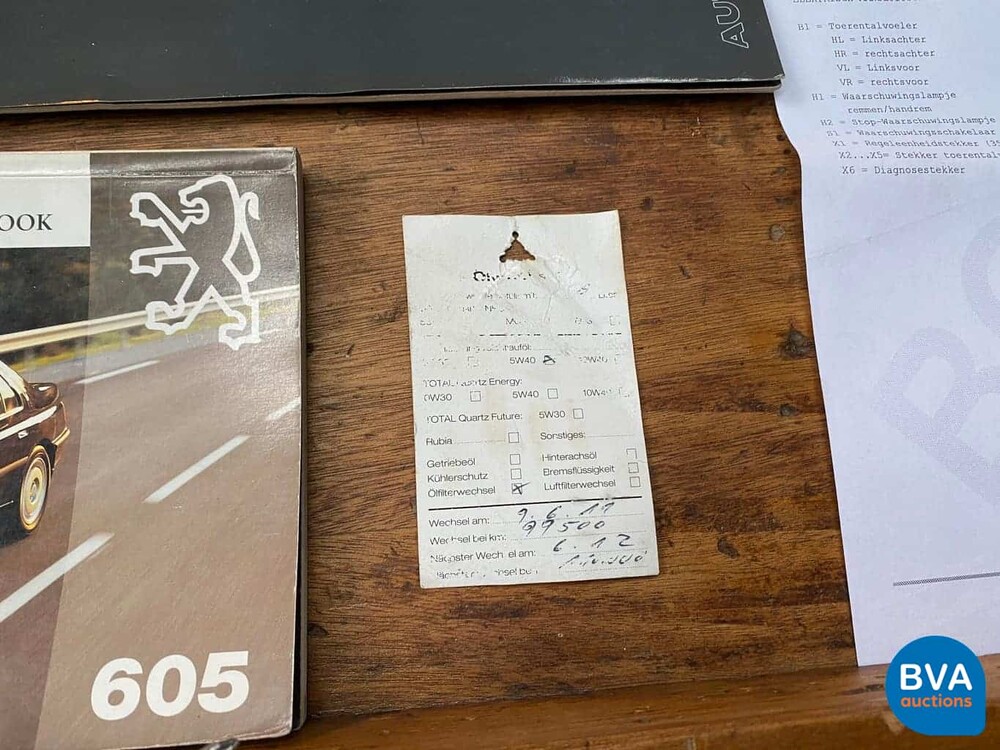 AU
OOK
605
5W40
TOTAL Quartz Energy:
0W30 5W40 10W40
TOTAL Quartz Future: 5W30
Rubia Sonstiges:
Getriebeöl Hinterachsöl
Kühlerschutz Bremsflüssigkeit
Ölfilterwechsel Luftfilterwechsel
Wechsel am: 9.6.11
Wechsel bei km: 99500
Nächster Wechsel am: 6.12
H1 = Toerentalvoeler
HL = Linksachter
HR = rechtsachter
VL = Linksvoor
VR = rechtsvoor
H1 = Waarschuwingslampje
remmen/handrem
H2 = Stop-Waarschuwingslampje
S1 = Waarschuwingsschakelaar
X1 = Regeleenheidstekker (35
X2...X5= Stekker toerental
X6 = Diagnosestekker
BVA
auctions